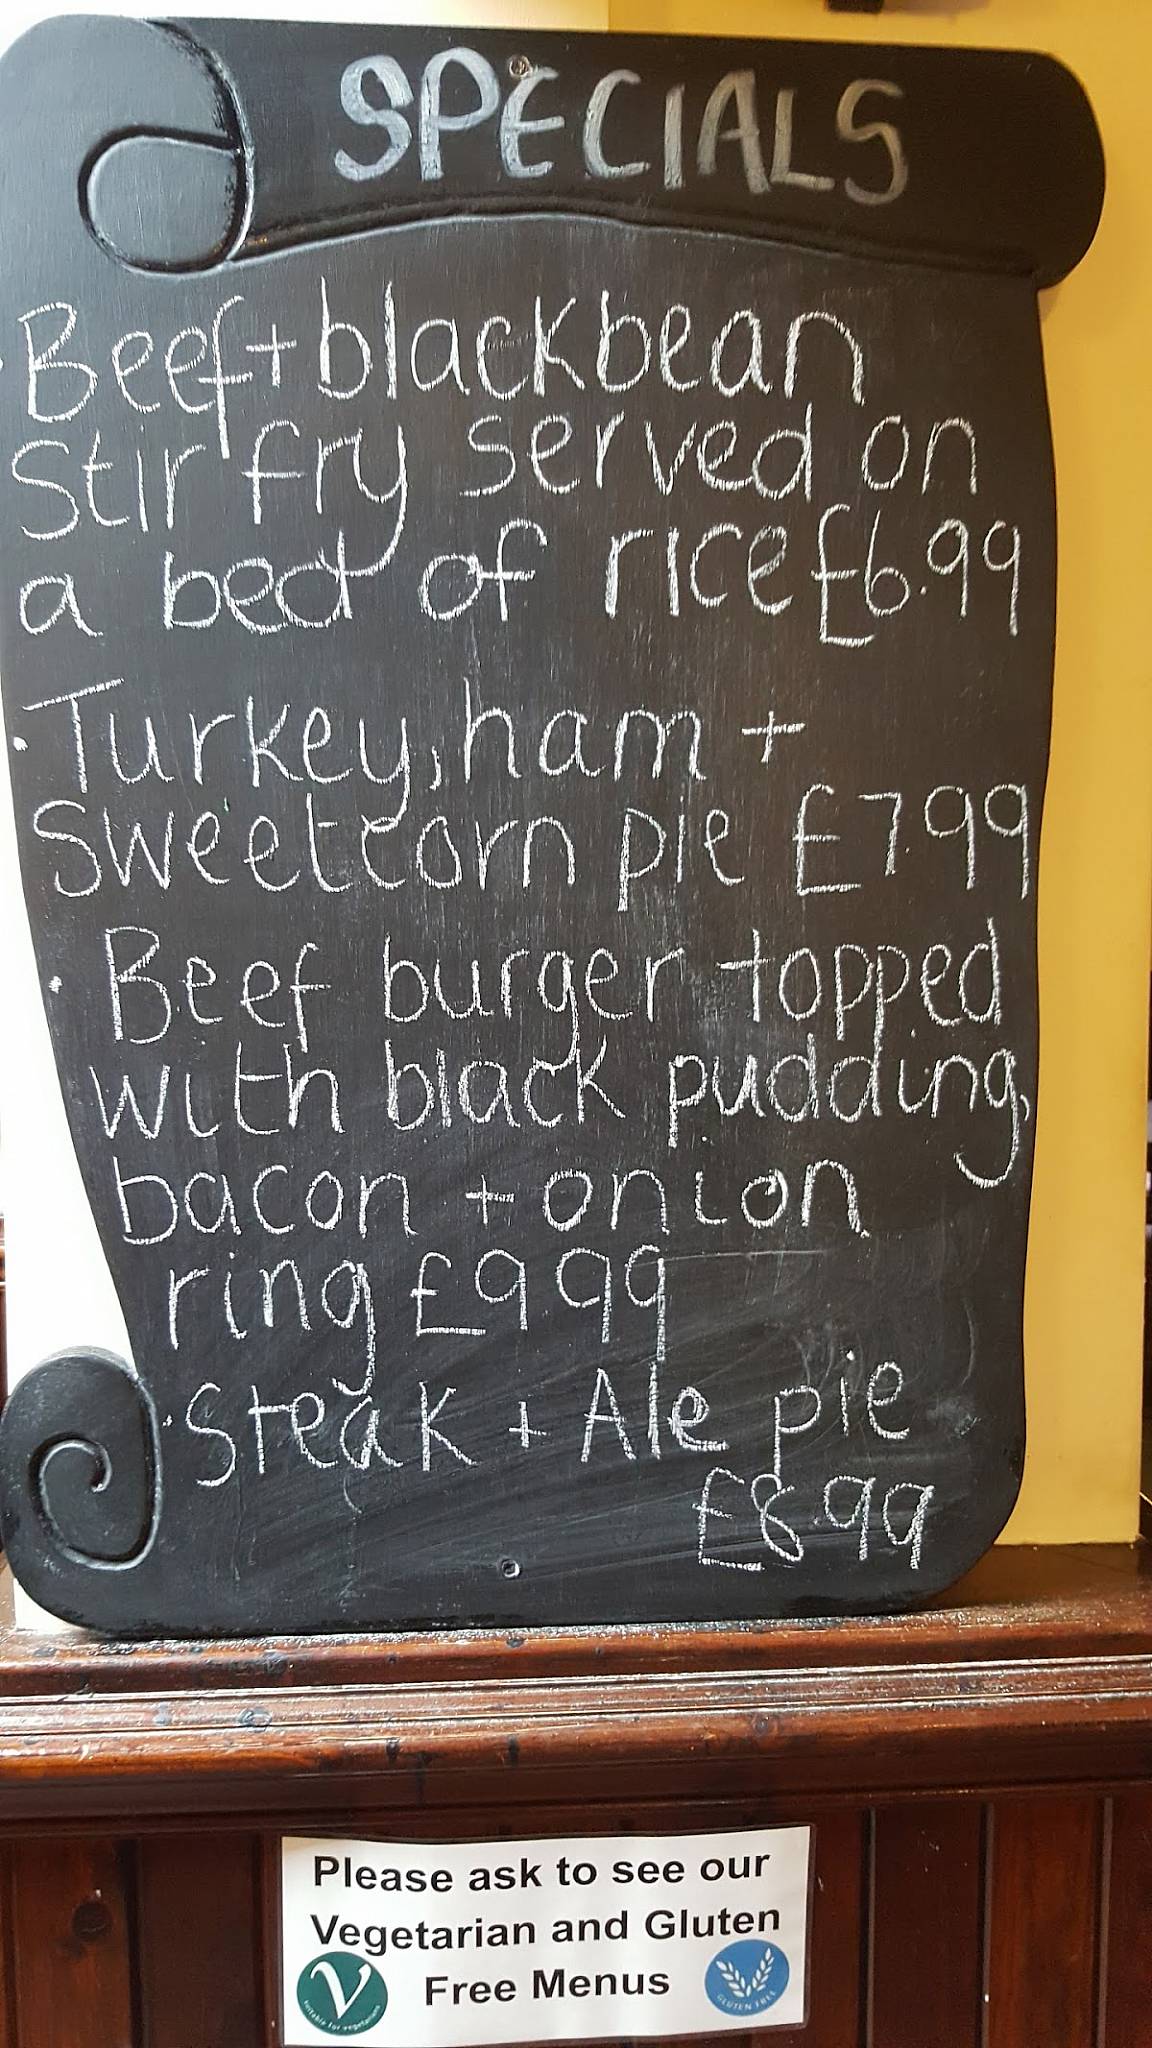 SPECIALS
· Beef + blackbean
Stir fry served on
a bed of rice £6.99
· Turkey, ham +
Sweetcorn pie £7.99
· Beef burger topped
with black pudding,
bacon + onion
ring £9.99
· Steak + Ale pie
£8.99
Please ask to see our
Vegetarian and Gluten
Free Menus
V
suitable for vegetarians
GLUTEN FREE